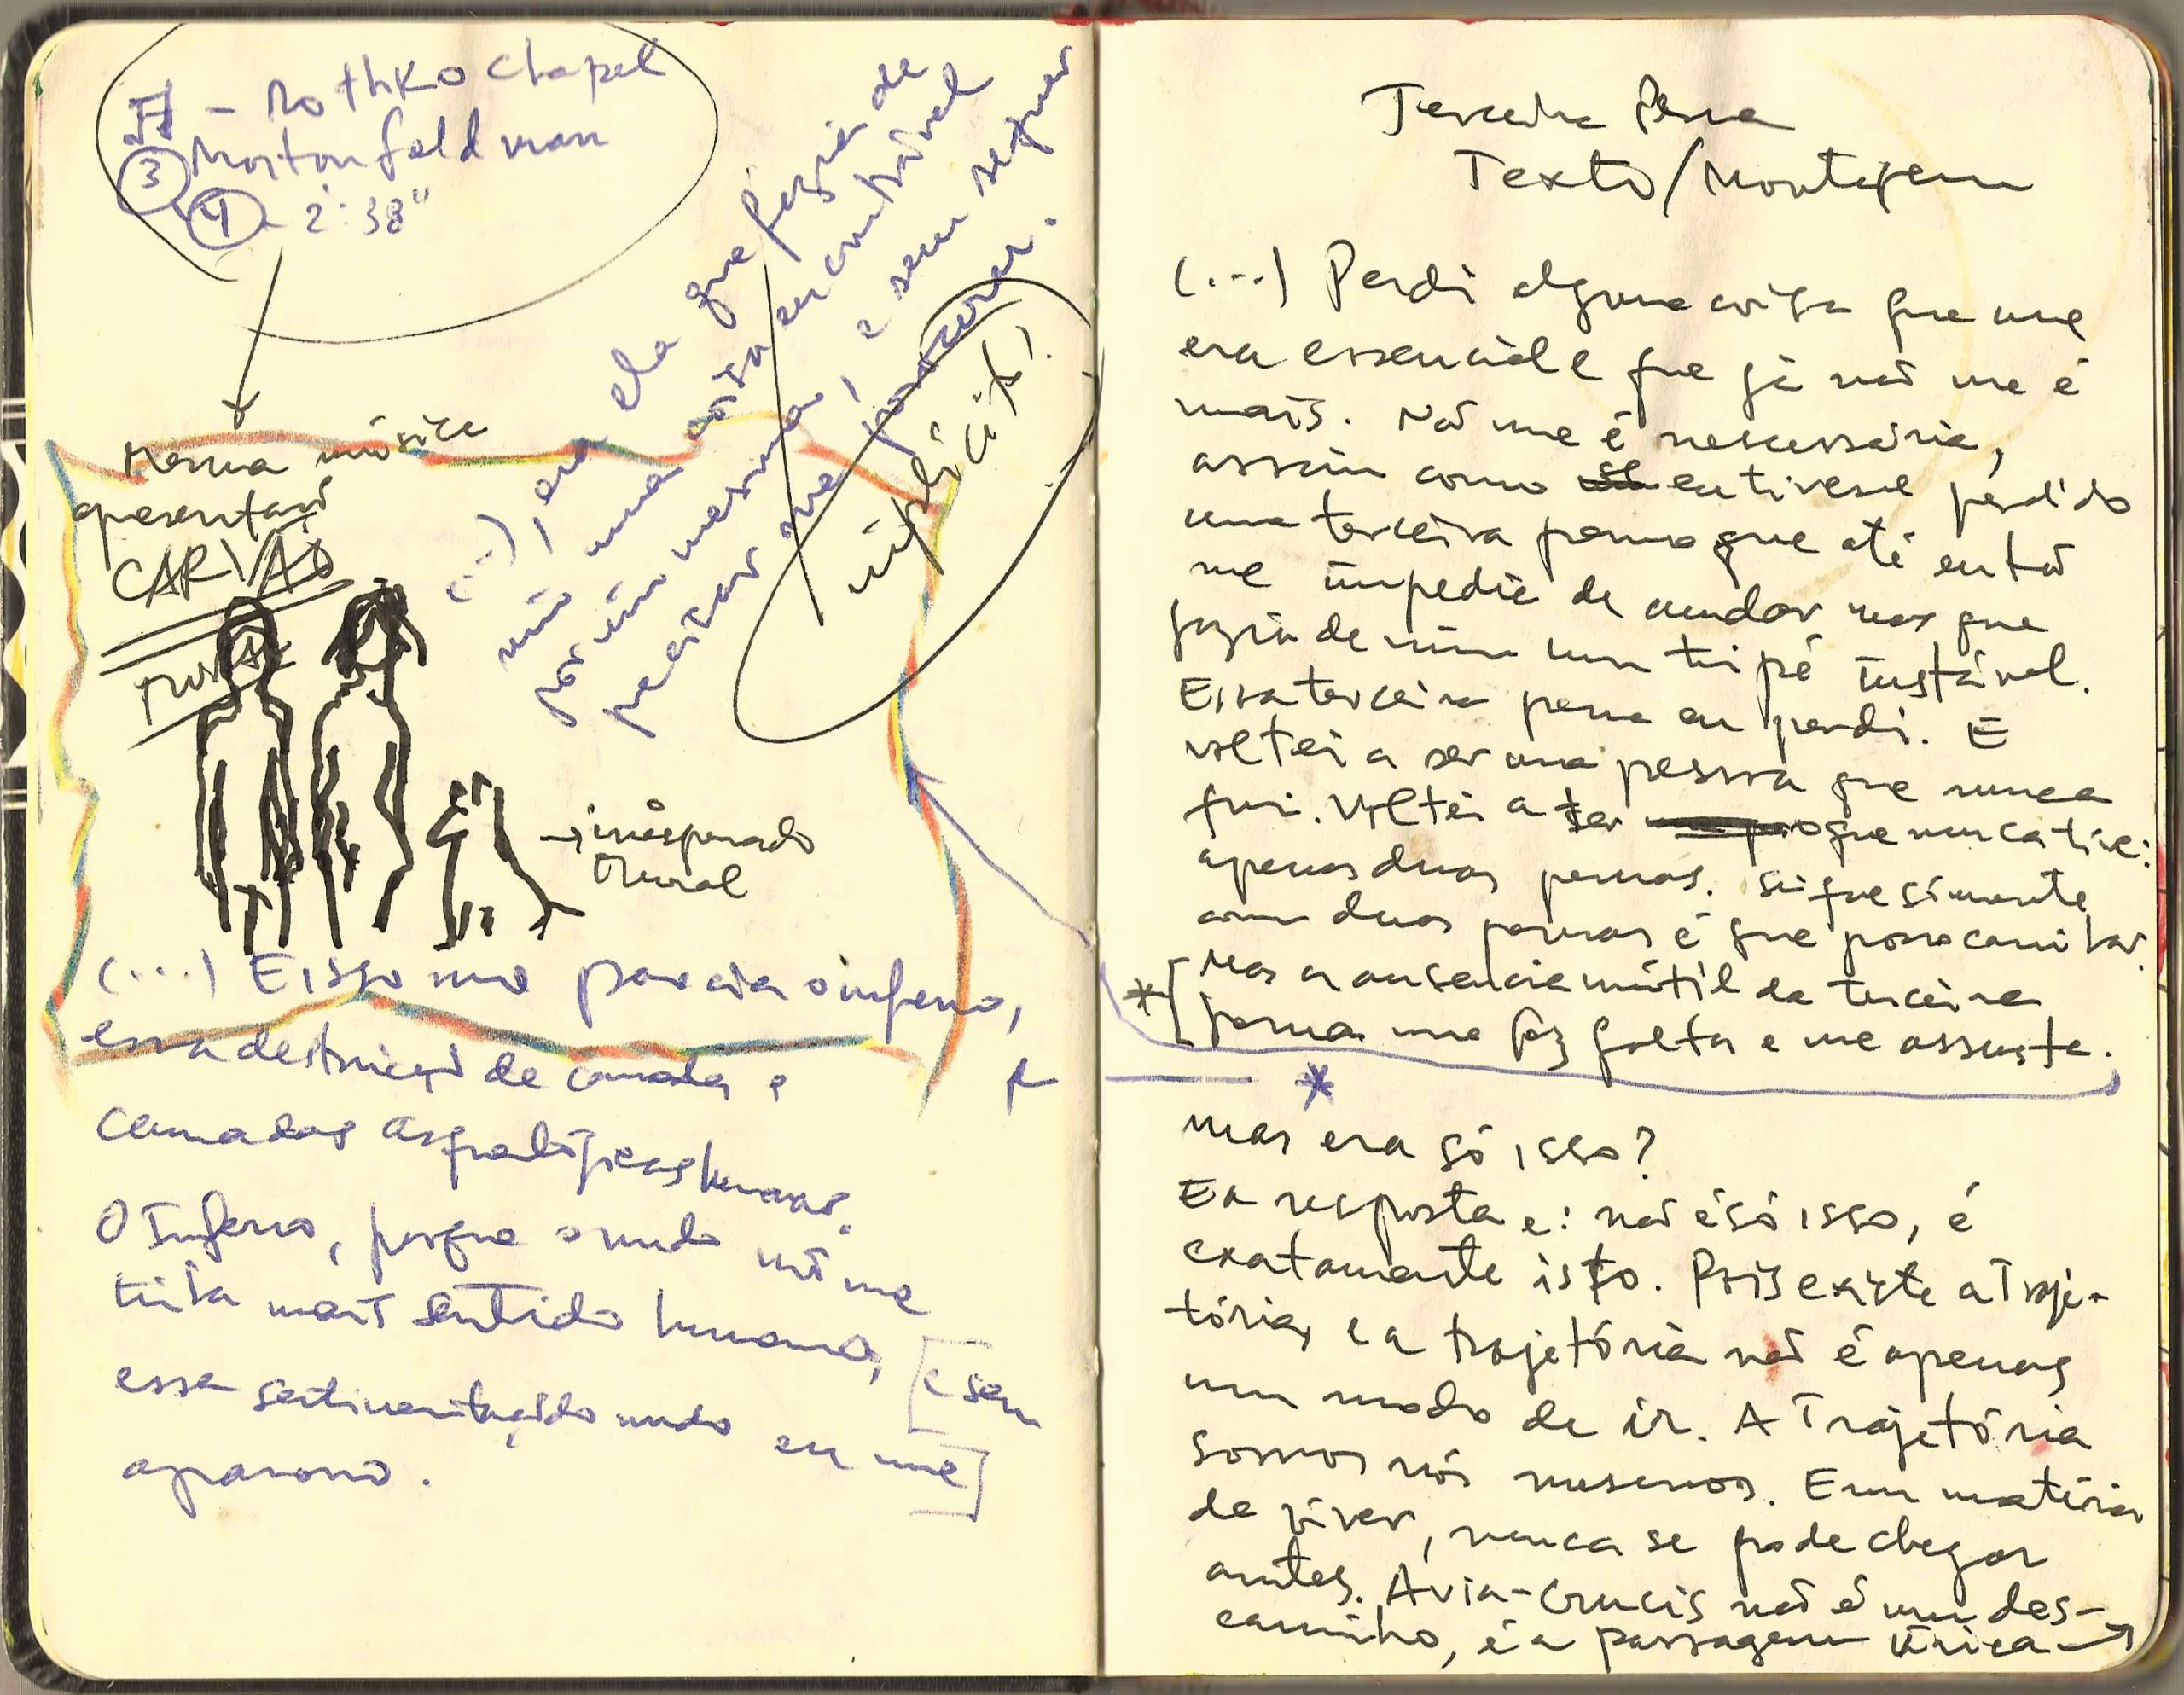 - Rothko Chapel
3 Morton Feldman
4 - 2:38"
mesma música
apresentação
CARVÃO
mural
(...) era ela que fazia de
mim uma coisa encontrável
por mim mesma, e sem sequer
precisar me procurar.
→ inesperado
mural
(...) E isso me parecia o inferno,
essa destruição de camadas e
camadas arqueológicas humanas.
O Inferno, porque o mundo não me
tinha mais sentido humano, [e sem
essa sentimentação do mundo eu me]
apavoro.
Terceira Perna
Texto/Montagem
(...) Perdi alguma coisa que me
era essencial e que já não me é
mais. Não me é necessária,
assim como se eu tivesse perdido
uma terceira perna que até então
me impedia de andar mas que
fazia de mim um tripé instável.
Essa terceira perna eu perdi. E
voltei a ser uma pessoa que nunca
fui. Voltei a ter o que nunca tive:
apenas duas pernas. Sei que somente
com duas pernas é que posso caminhar.
*[Mas a ausência inútil da terceira
perna me faz falta e me assusta.
*
mas era só isso?
E a resposta e: não é só isso, é
exatamente isto. Pois existe a Traje-
tória, e a trajetória não é apenas
um modo de ir. A Trajetória
somos nós mesmos. Em matéria
de viver, nunca se pode chegar
antes. A via-crucis não é um des-
caminho, é a passagem única →